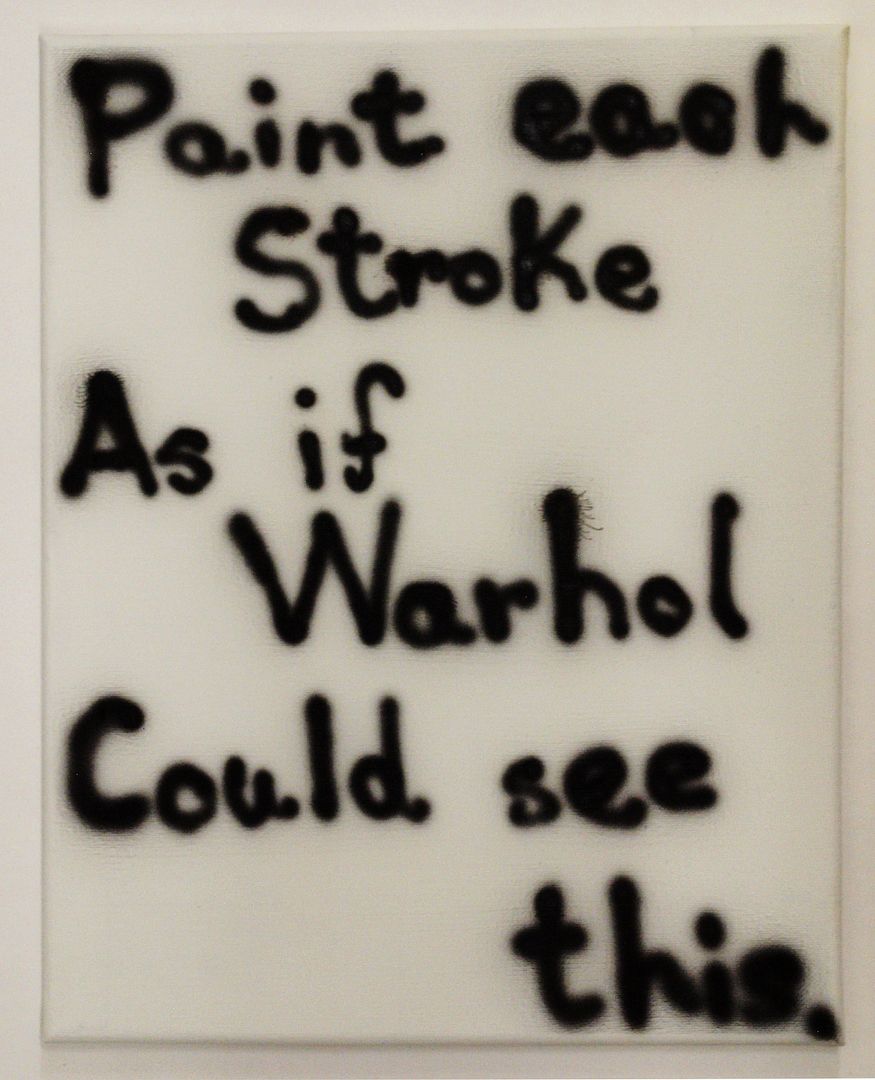 Paint each
Stroke
As if
Warhol
Could see
this.